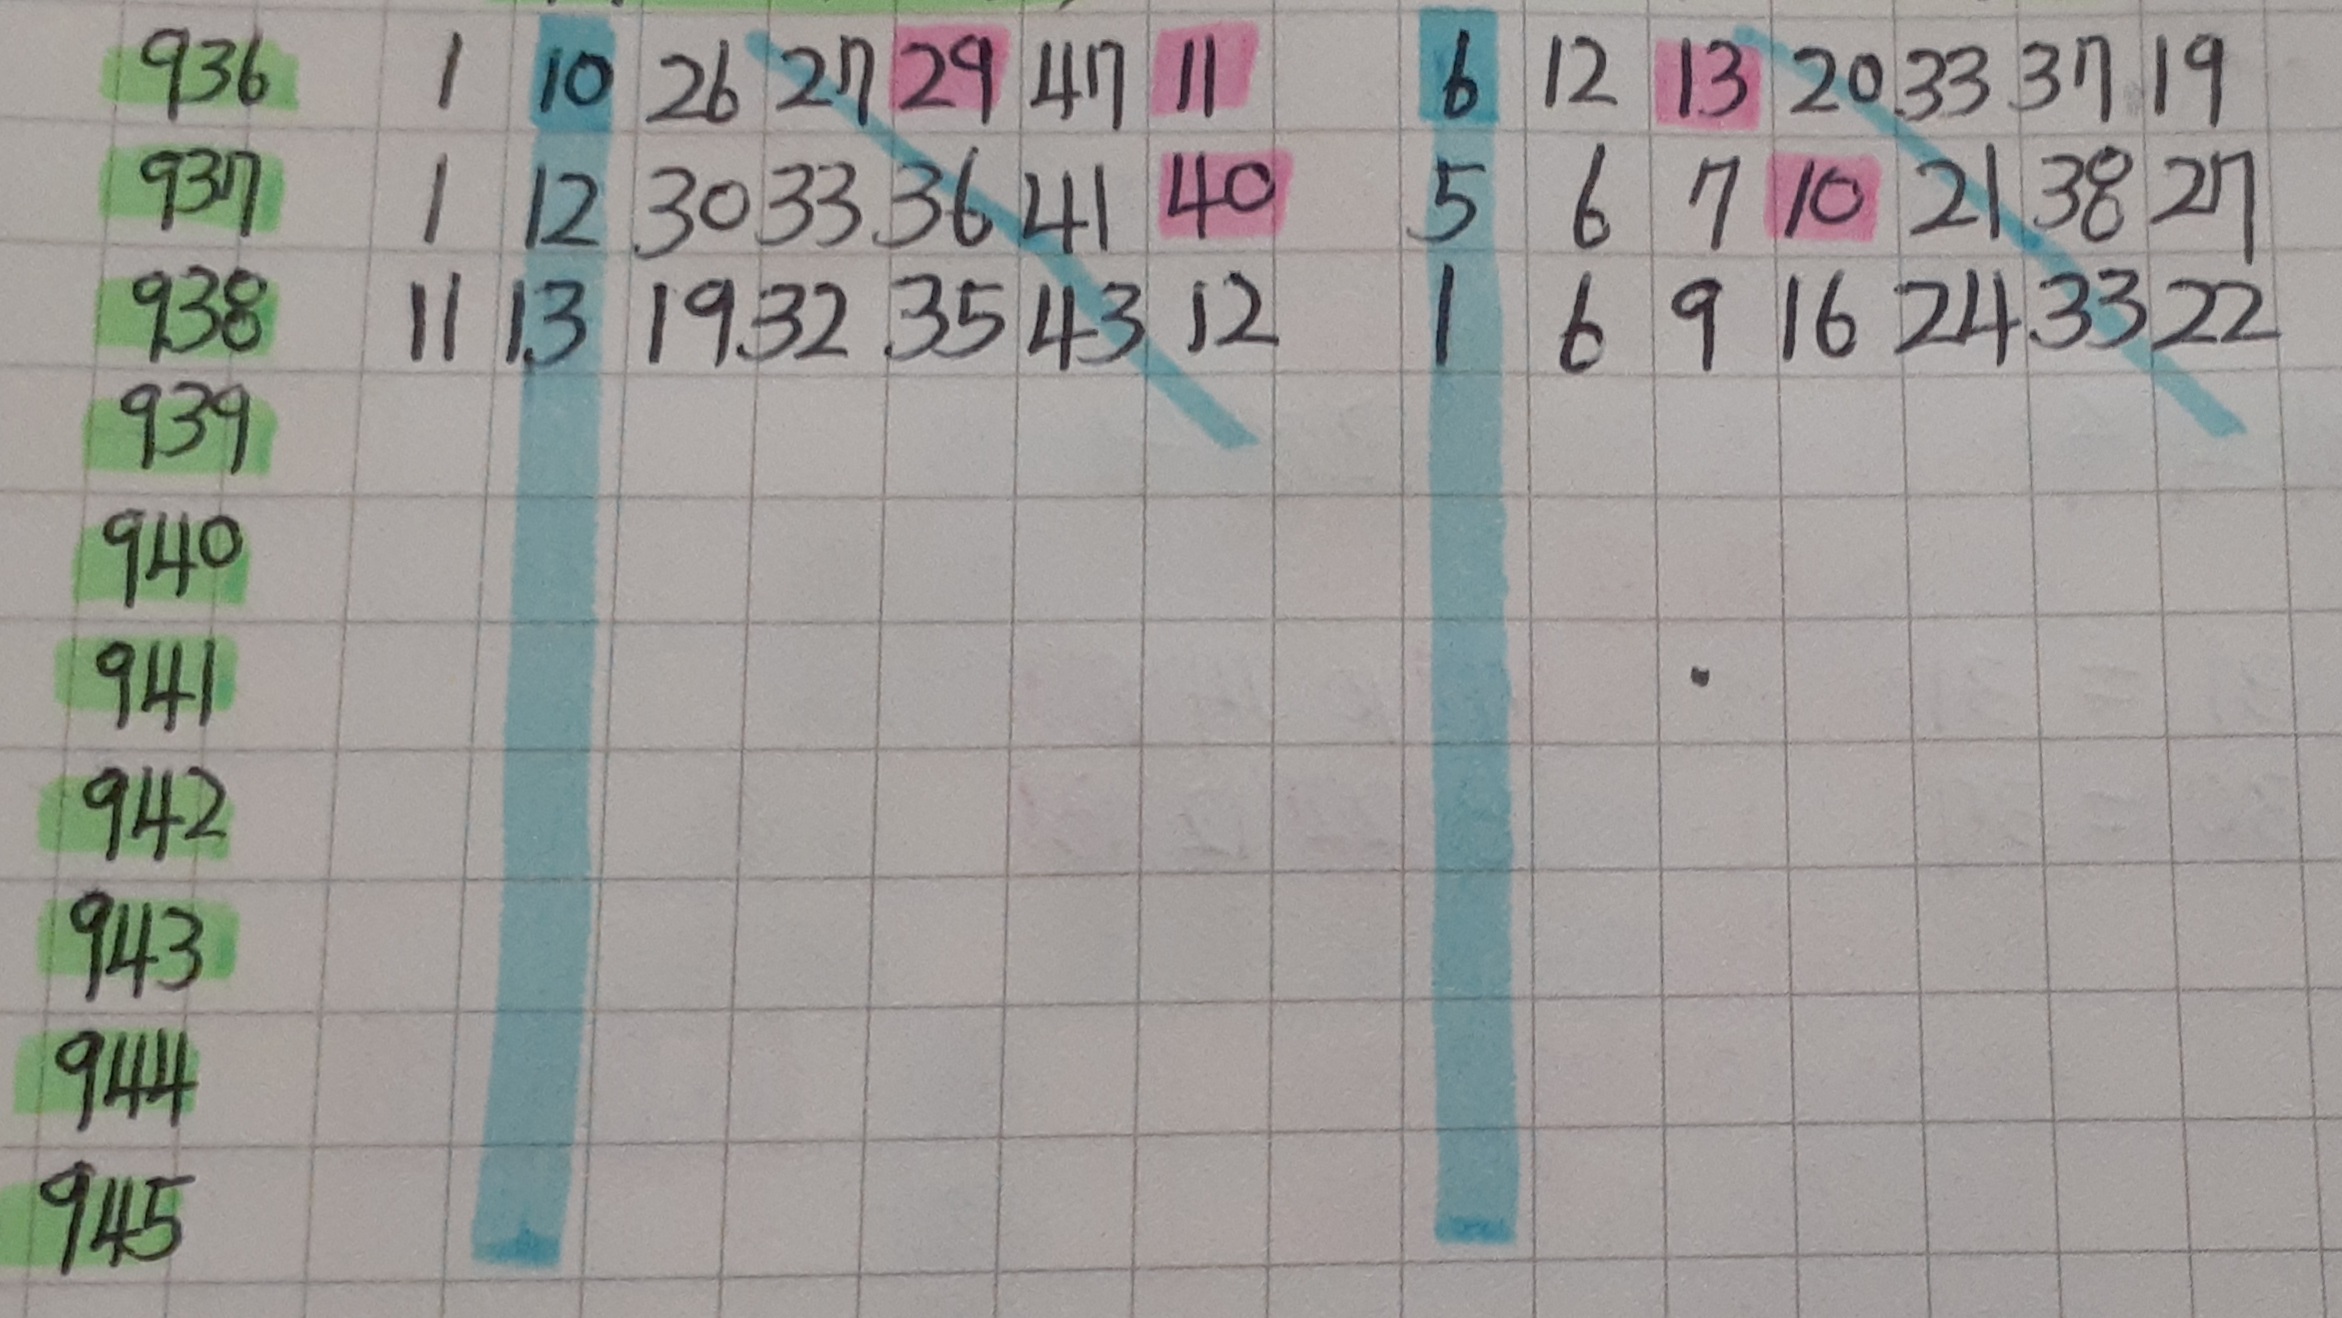 936 1 10 26 27 29 47 11 6 12 13 20 33 37 19
937 1 12 30 33 36 41 40 5 6 7 10 21 38 27
938 11 13 19 32 35 43 12 1 6 9 16 24 33 22
939
940
941
942
943
944
945